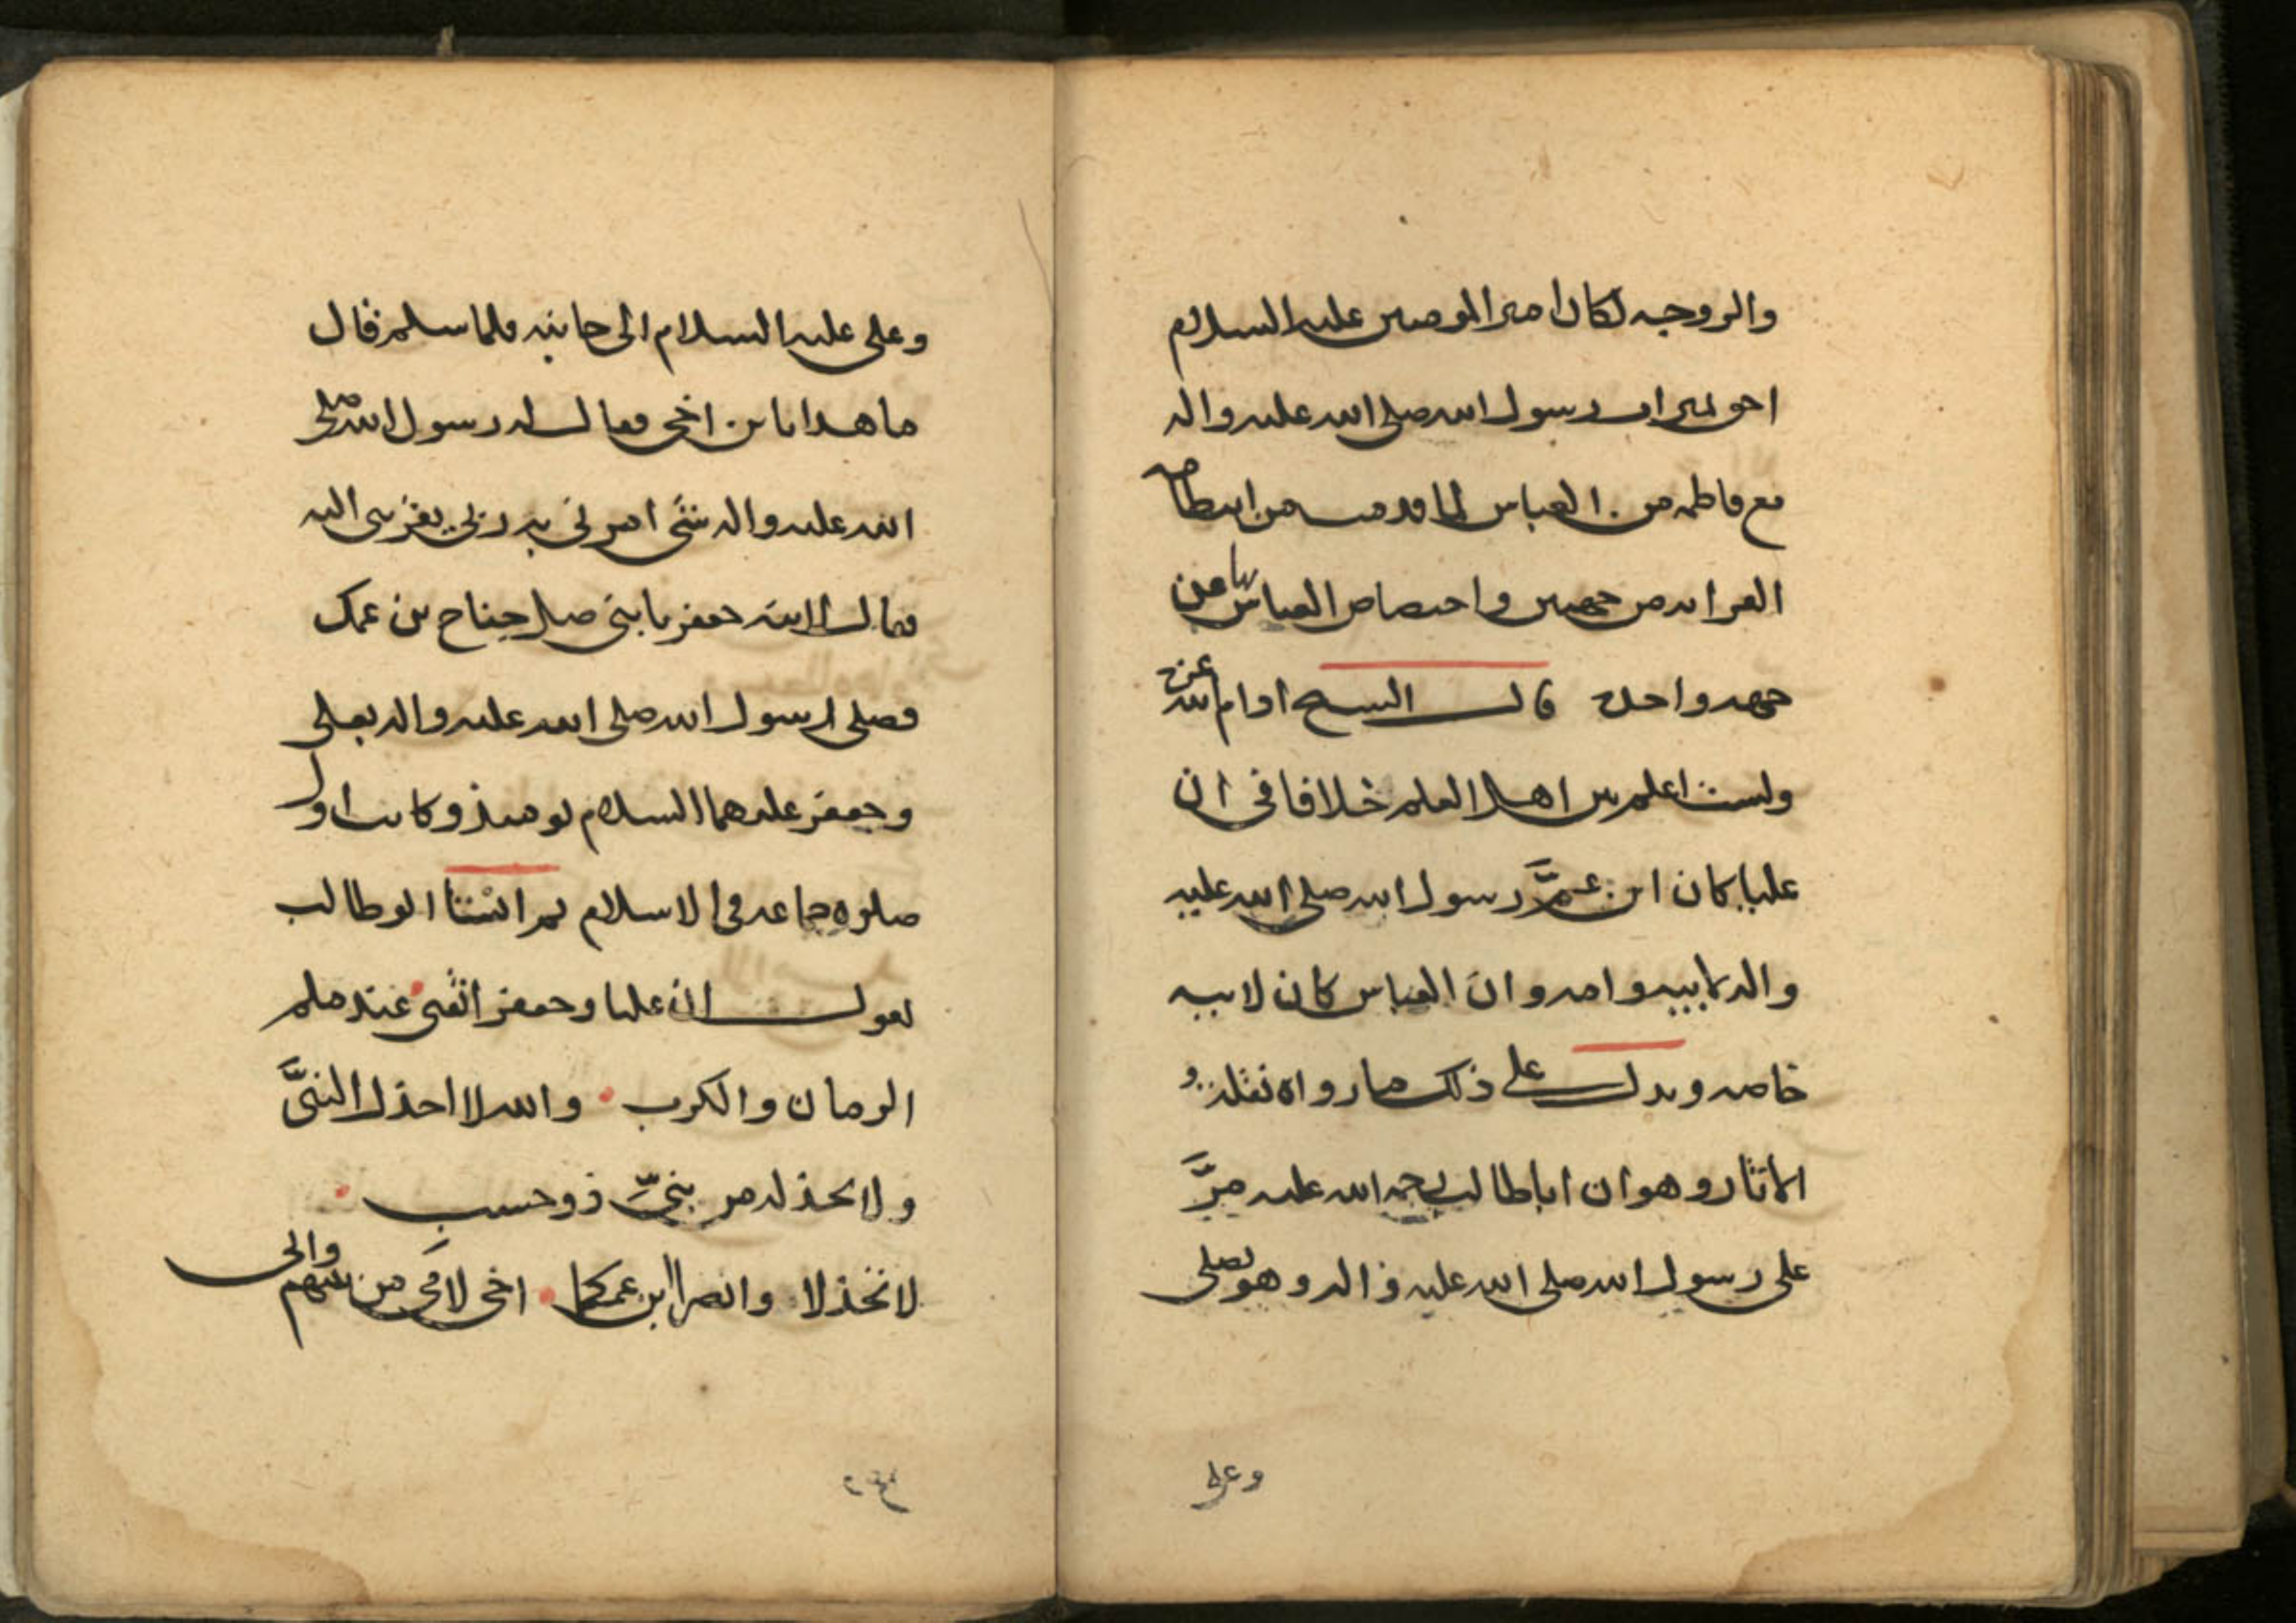 والزوجه لكان امير المومنين عليه السلام
احق بميراث رسول الله صلى الله عليه واله
مع فاطمه من العباس لما قدمت من انتظامه
القرابه من جهتين واختصاص العباس بها من
جهه واحده قال الشيخ ادام الله عزه
ولست اعلم بين اهل العلم خلافا في ان
عليا كان ابن عمّ رسول الله صلى الله عليه
واله لابيه وامه وان العباس كان لابيه
خاصه ويدل على ذلك ما رواه نقله
الاثار وهو ان ابا طالب رحمه الله عليه مرَّ
على رسول الله صلى الله عليه واله وهو يصلى
وعلى
وعلى عليه السلام الى جانبه فلما سلم قال
ما هذا يا بن اخى فقال له رسول الله صلى
الله عليه واله شئ امرنى به ربى يقربنى اليه
فقال لابنه جعفر يا بنى صل جناح بن عمك
فصلى رسول الله صلى الله عليه واله بعلى
وجعفر عليهما السلام يومئذ وكانت اول
صلوه جماعه فى الاسلام ثم انشا ابو طالب
يقول ان عليا وجعفر اثقتى عند ملم
الزمان والكرب والله لا اخذل النبىَّ
ولا يخذله من بنىّ ذو حسب
لا تخذلا وانصرا ابن عمكما اخى لامى من بينهم وابى